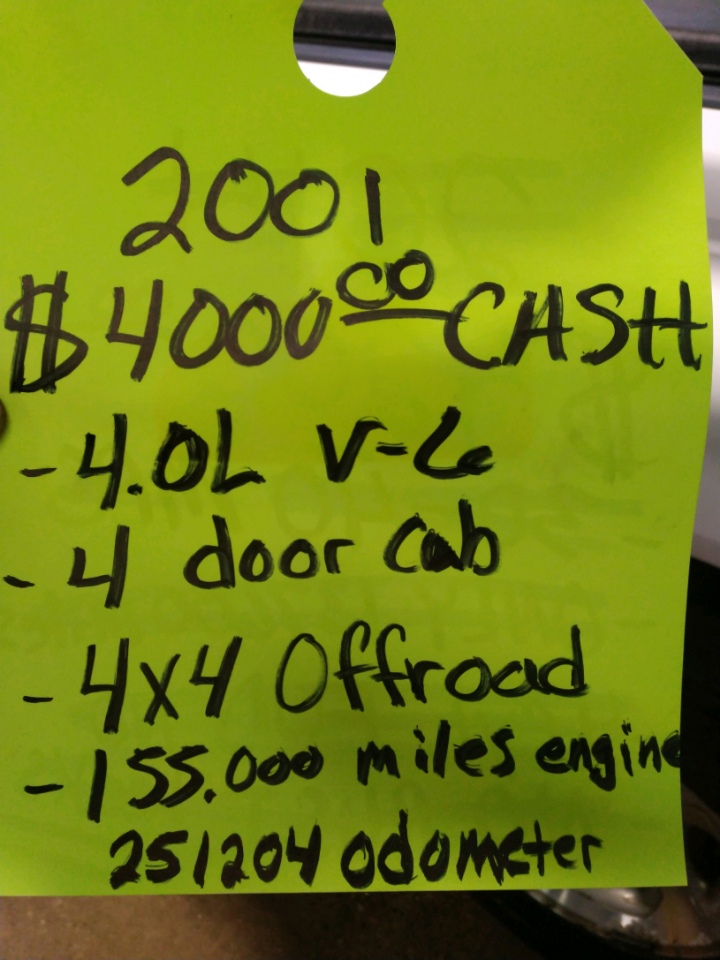 2001
$4000.00 CASH
- 4.0L V-6
- 4 door cab
- 4x4 Offroad
- 155.000 miles engine
251204 odometer